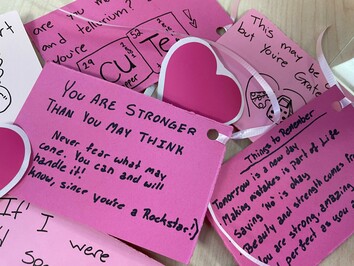 how
and tellurium?
you're
29
Cu
52
Te
This may be
but you're Great
YOU ARE STRONGER
THAN YOU MAY THINK
Never fear what may
come. You can and will
handle it!
know, since you're a Rockstar!:)
Things to Remember
Tomorrow is a new day
Making mistakes is part of Life
Saying "no" is okay
Beauty and strength comes
you are strong, amazing
perfect as you
If I were